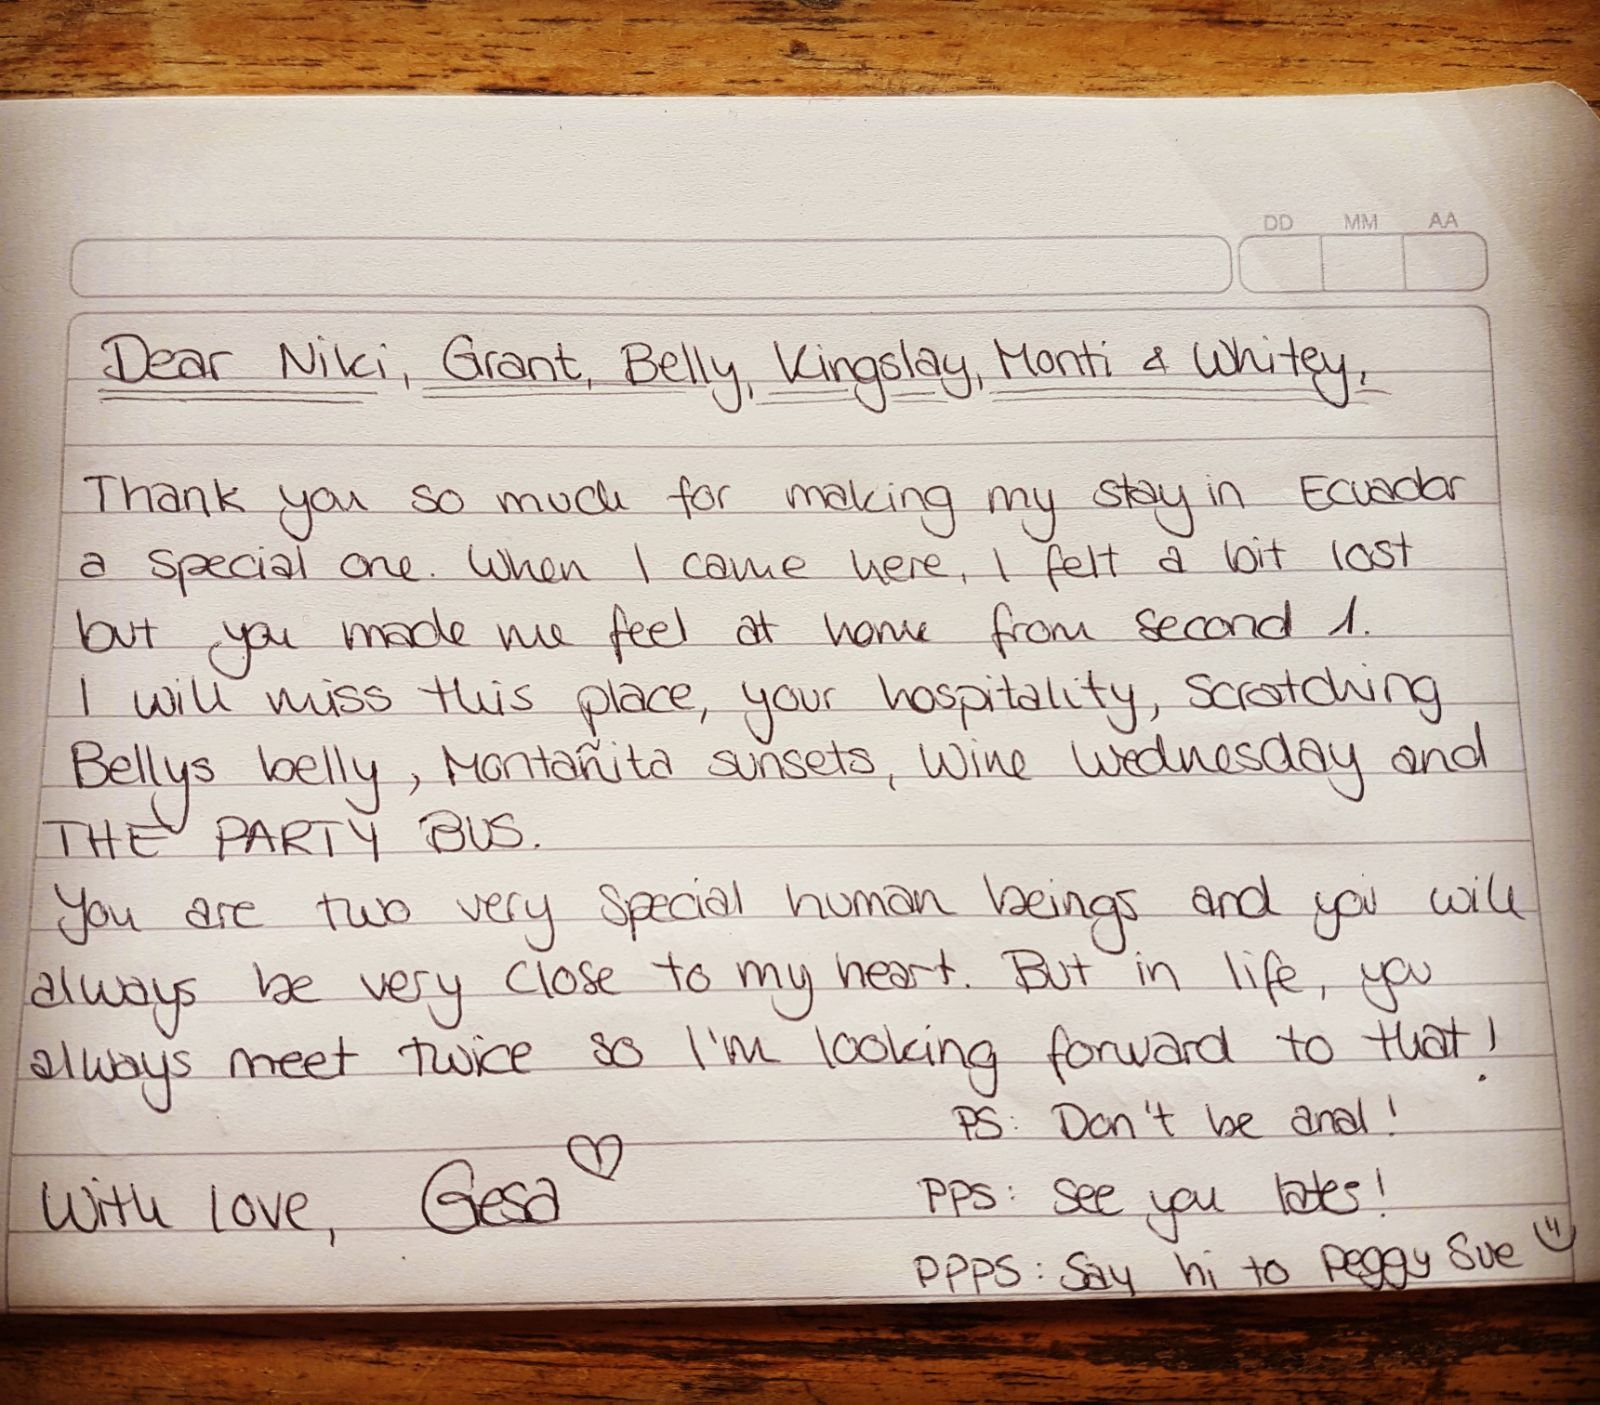 DD MM AA
Dear Niki, Grant, Belly, Kingslay, Monti & Whitey,
Thank you so much for making my stay in Ecuador
a special one. When I came here, I felt a bit lost
but you made me feel at home from second 1.
I will miss this place, your hospitality, scratching
Bellys belly, Montañita sunsets, Wine Wednesday and
THE PARTY BUS.
You are two very special human beings and you will
always be very close to my heart. But in life, you
always meet twice so I'm looking forward to that!
PS: Don't be anal!
With love, Gesa
PPS: See you lates!
PPPS: Say hi to Peggy Sue